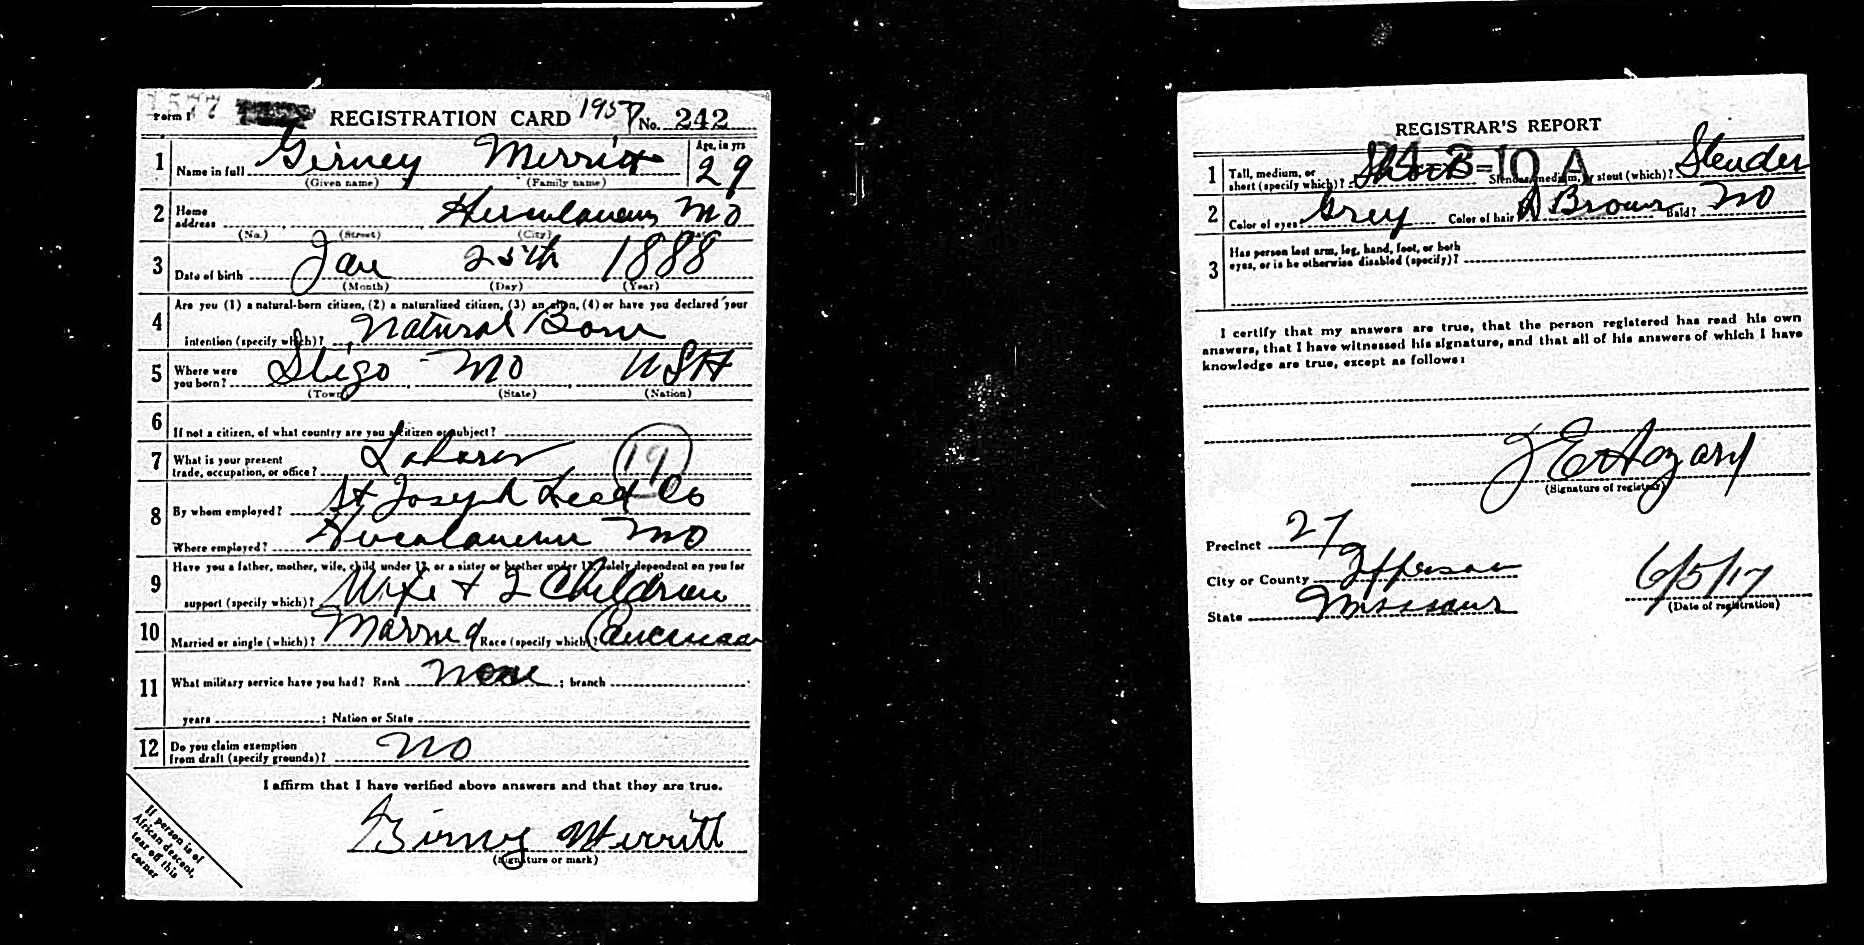 1577
Form 1 REGISTRATION CARD 1957 No. 242
1 Name in full Girney Merritt Age, in yrs 29
(Given name) (Family name)
2 Home address Herculaneum MO
(No.) (Street) (City)
3 Date of birth Jan 25th 1888
(Month) (Day) (Year)
4 Are you (1) a natural-born citizen, (2) a naturalized citizen, (3) an alien, (4) or have you declared your
intention (specify which)? Natural Born
5 Where were you born? Sligo MO USA
(Town) (State) (Nation)
6 If not a citizen, of what country are you a citizen or subject?
7 What is your present trade, occupation, or office? Laborer 19
8 By whom employed? St Joseph Lead Co
Where employed? Herculaneum MO
9 Have you a father, mother, wife, child under 12, or a sister or brother under 12, solely dependent on you for
support (specify which)? Wife + 2 Children
10 Married or single (which)? Married Race (specify which)? Caucasian
11 What military service have you had? Rank None ; branch
years ; Nation or State
12 Do you claim exemption from draft (specify grounds)? NO
I affirm that I have verified above answers and that they are true.
Girney Merritt
(Signature or mark)
If person is of
African descent,
tear off this
corner
REGISTRAR'S REPORT
24-3-10 A
1 Tall, medium, or short (specify which)? Short Slender, medium, or stout (which)? Slender
2 Color of eyes? Grey Color of hair? D Brown Bald? NO
3 Has person lost arm, leg, hand, foot, or both
eyes, or is he otherwise disabled (specify)?
I certify that my answers are true, that the person registered has read his own
answers, that I have witnessed his signature, and that all of his answers of which I have
knowledge are true, except as follows:
J E Hogard
(Signature of registrar)
Precinct 27
City or County Jefferson
State Missouri
6/5/17
(Date of registration)